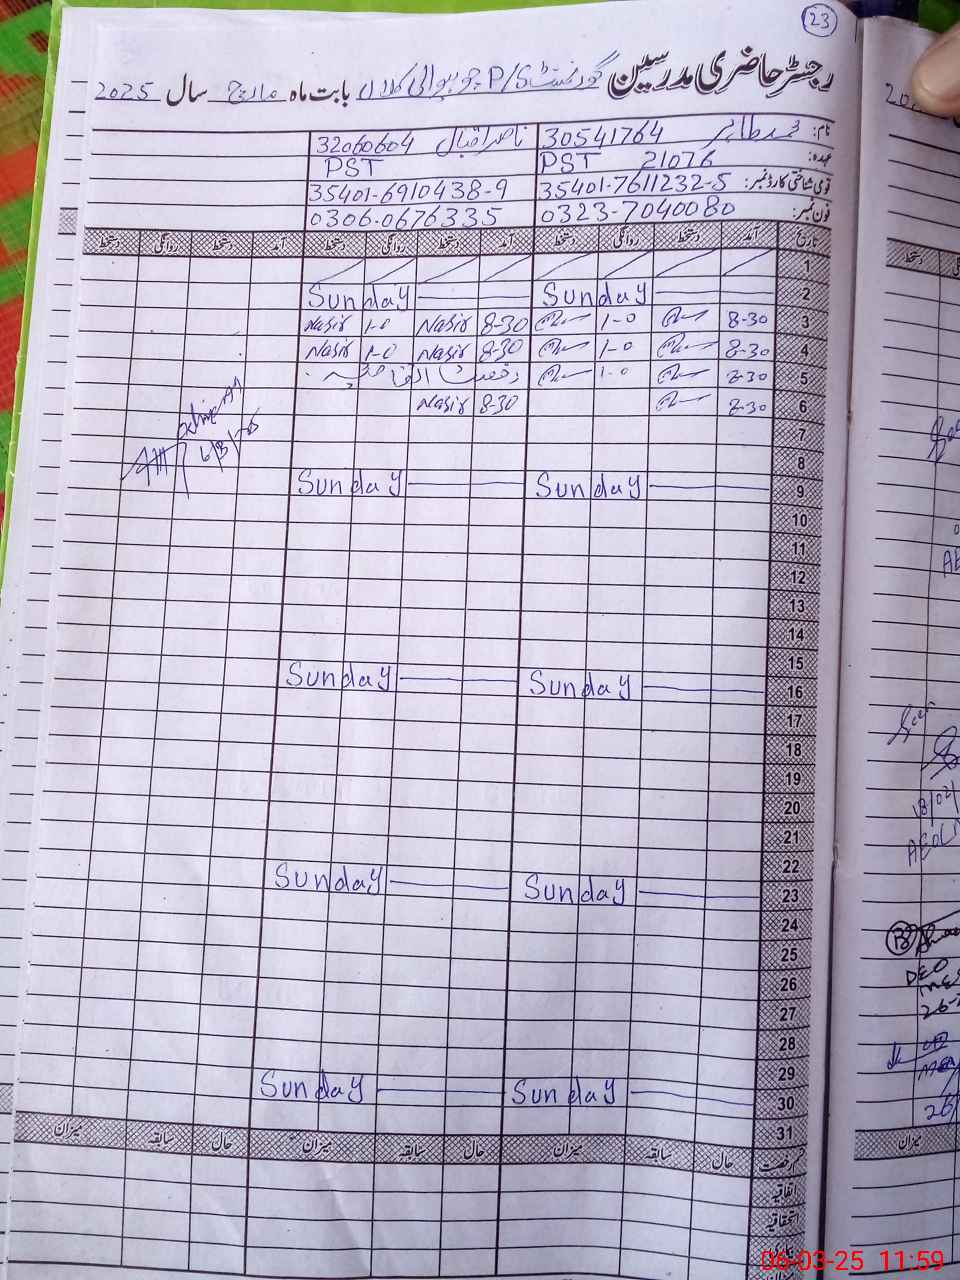 23
رجسٹر حاضری مدرسین گورنمنٹ P/S جوہیوالی کلاں بابت ماہ مارچ سال 2025
نام: محمد طاہر 30541764 ناصر اقبال 32060604
عہدہ: PST 21076 PST
قومی شناختی کارڈ نمبر: 35401-7611232-5 35401-6910438-9
فون نمبر: 0323-7040080 0306-0676335
تاریخ آمد دستخط روانگی دستخط آمد دستخط روانگی دستخط آمد دستخط روانگی دستخط
1
2 Sunday Sunday
3 8-30 1-0 8-30 Nasir 1-0 Nasir
4 8-30 1-0 8-30 Nasir 1-0 Nasir
5 8-30 1-0 رخصت اتفاقیہ
6 8-30 8-30 Nasir
7
8
6/3/25
9 Sunday Sunday
10
11
12
13
14
15
16 Sunday Sunday
17
18
19
20
21
22
23 Sunday Sunday
24
25
26
27
28
29
30 Sunday Sunday
31
قسم رخصت حال سابقہ میزان حال سابقہ میزان حال سابقہ میزان
اتفاقیہ
استحقاقیہ
دستخط
18/02/
AEO
DEO
میزان
06-03-25 11:59